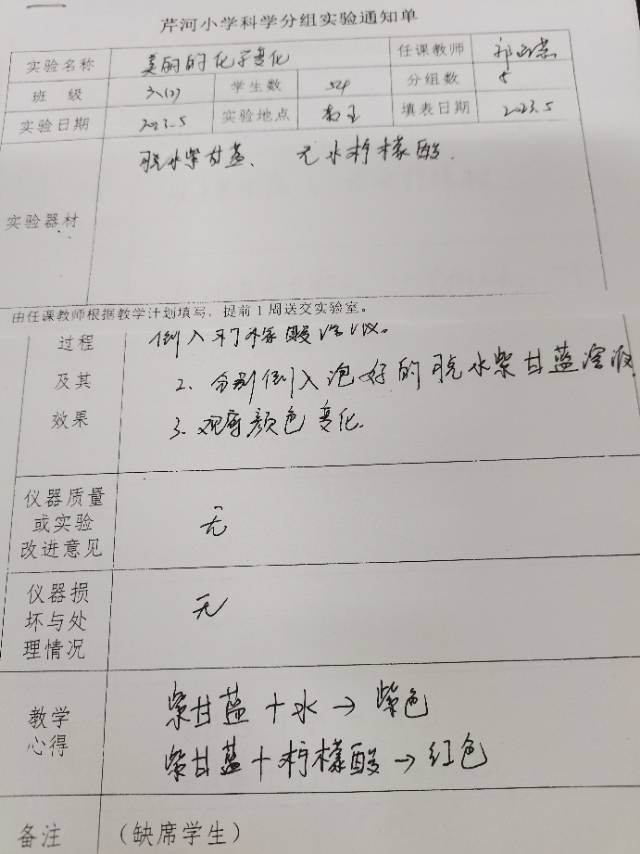 芹河小学科学分组实验通知单
实验名称 美丽的化学变化 任课教师
班 级 六(2) 学生数 54 分组数
实验日期 2023.5 实验地点 填表日期 2023.5
脱水紫甘蓝、 无水柠檬酸.
实验器材
由任课教师根据教学计划填写，提前1周送交实验室。
过程 倒入柠檬酸溶液。
及其 2. 分别倒入泡好的脱水紫甘蓝溶液
效果 3. 观察颜色变化.
仪器质量
或实验 无
改进意见
仪器损
坏与处 无
理情况
紫甘蓝+水→紫色
教学
心得
紫甘蓝+柠檬酸→红色
备注 （缺席学生）